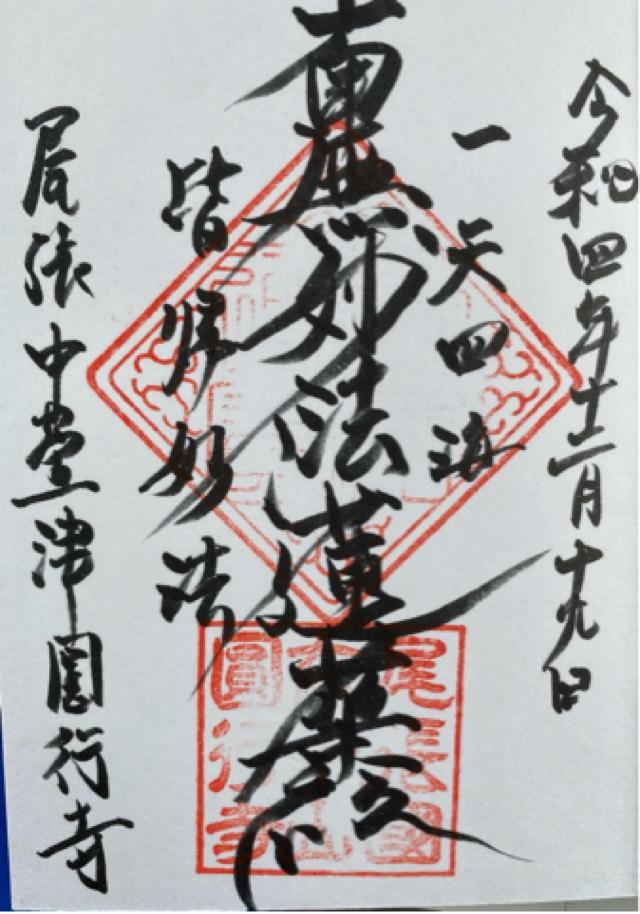 令和四年十二月十九日
一天四海
南無妙法蓮華経
皆帰妙法
尾張中萱津圓行寺
尾張國
圓行寺